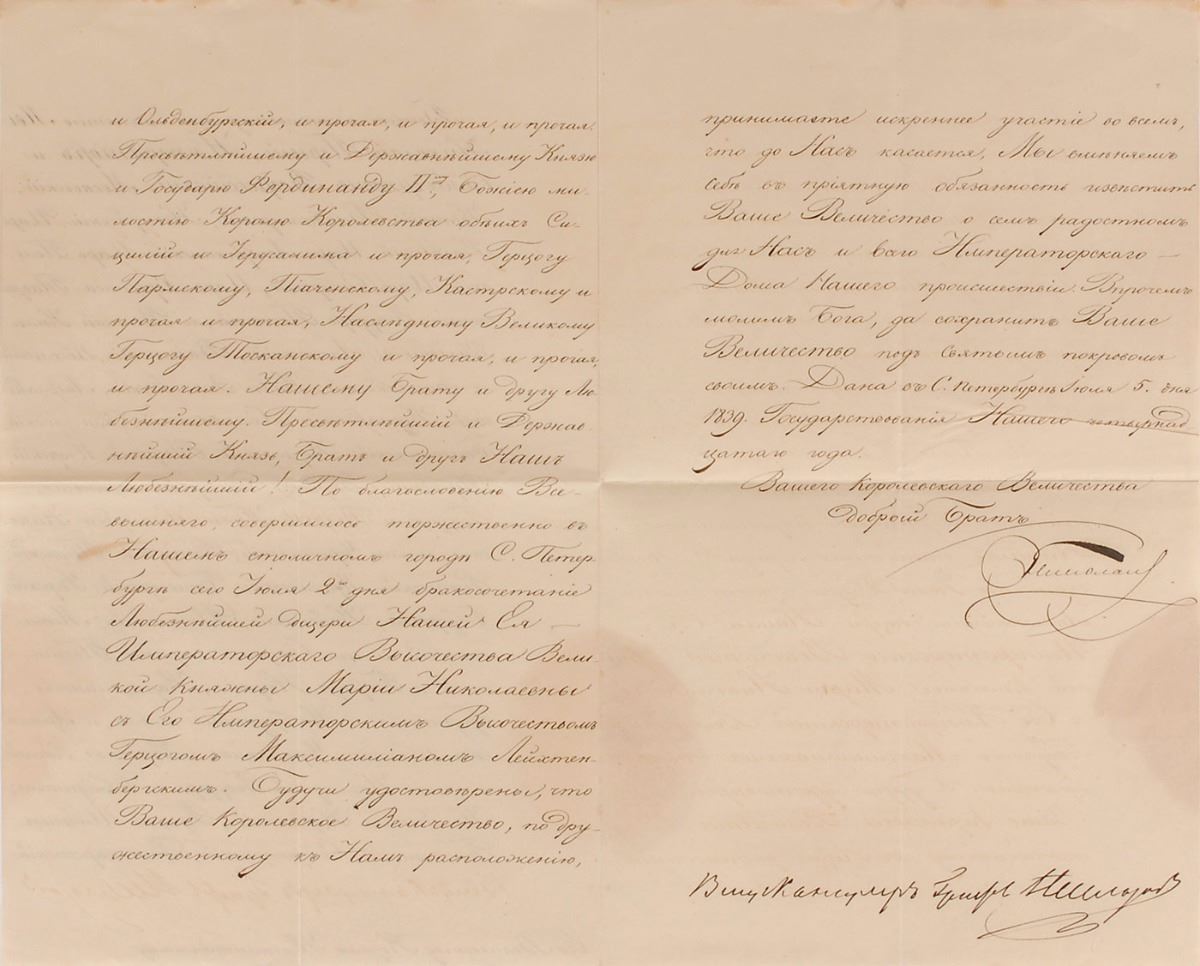 и Ольденбургскій, и прочая, и прочая, и прочая.
Пресвѣтлѣйшему и Державнѣйшему Князю
и Государю Фердинанду IIму, Божіею ми-
лостію Королю Королевства обѣихъ Си-
цилій и Іерусалима и прочая, Герцогу
Пармскому, Піаченскому, Кастрскому и
прочая и прочая, Наслѣдному Великому
Герцогу Тосканскому и прочая, и прочая,
и прочая. Нашему Брату и другу Лю-
безнѣйшему. Пресвѣтлѣйшій и Державнѣйшій
Князь, Братъ и другъ Нашъ
Любезнѣйшій! По благословенію Все-
вышняго, совершилось торжественно въ
Нашемъ столичномъ городѣ С. Петер
бургѣ сего Іюля 2го дня бракосочетаніе
Любезнѣйшей дщери Нашей Ея —
Императорскаго Высочества Вели-
кой Княжны Маріи Николаевны
съ Его Императорскимъ Высочествомъ
Герцогомъ Максимиліаномъ Лейхтен-
бергскимъ. Будучи удостовѣрены, что
Ваше Королевское Величество, по дру-
жественному къ Намъ расположенію,
принимаете искреннее участіе во всемъ,
что до Насъ касается, Мы вмѣняемъ
Себѣ въ пріятную обязанность извѣстить
Ваше Величество о семъ радостномъ
для Насъ и всего Императорскаго —
Дома Нашего происшествіи. Впрочемъ
молимъ Бога, да сохранитъ Ваше
Величество подъ святымъ покровомъ
своимъ. Дана въ С. Петербургѣ Іюля 5. дня
1839. Государствованія Нашего четвернад
цатаго года.
Вашего Королевскаго Величества
добрый Братъ
Николай
Вице Канцлеръ Графъ Нессельроде